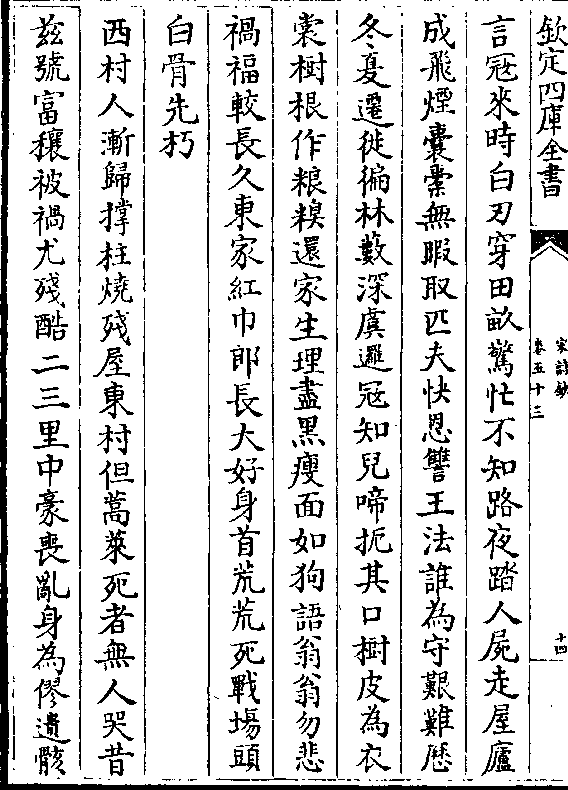 欽定四庫全書
宋詩鈔
卷五十三
十四
言冦來時白刃穿田畝驚忙不知路夜踏人屍走屋廬
成飛煙囊橐無暇取匹夫快恩讐王法誰為守艱難歴
冬夏遷徙徧林藪深虞邏冦知兒啼扼其口樹皮為衣
裳樹根作粮糗還家生理盡黑瘦面如狗語翁翁勿悲
禍福較長久東家紅巾郎長大好身首荒荒死戰場頭
白骨先朽
西村人漸歸撑柱燒殘屋東村但蒿萊死者無人哭昔
兹號富穰被禍尤殘酷二三里中豪喪亂身為僇遺骸